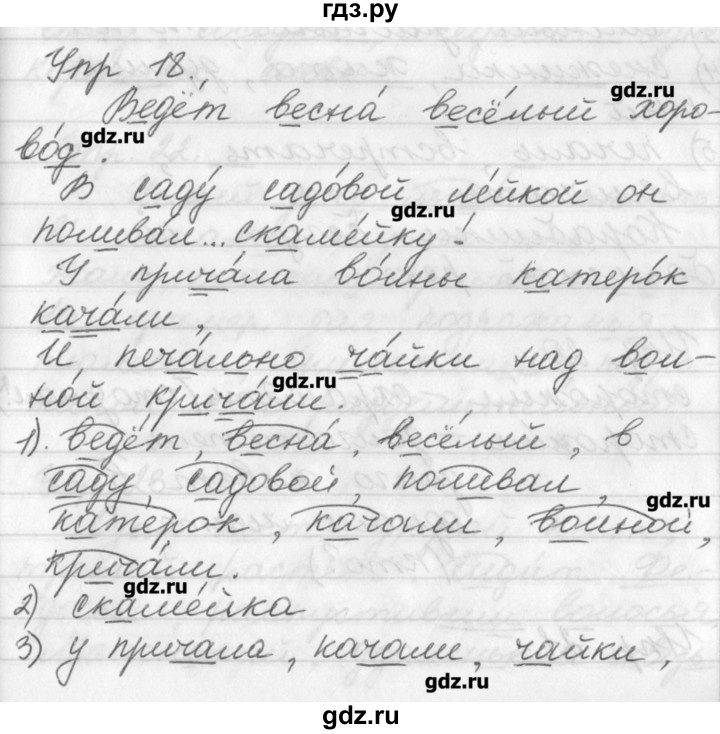 гдз.ру
Упр 18.
Ведёт весна́ весёлый хоро-
gdz.ru
во́д.
gdz.ru
В саду́ садо́вой ле́йкой он
gdz.ru
поливал... скаме́йку!
У прича́ла во́лны катеро́к
кача́ли,
И печа́льно ча́йки над вол-
gdz.ru
но́й крича́ли.
1). ведёт, весна́, весёлый, в
саду, садовой, поливал,
gdz.ru
катерок, качали, волной,
крича́ли.
gdz.ru
2) скаме́йка
3) у причала, качали, чайки,
gdz.ru
gdz.ru